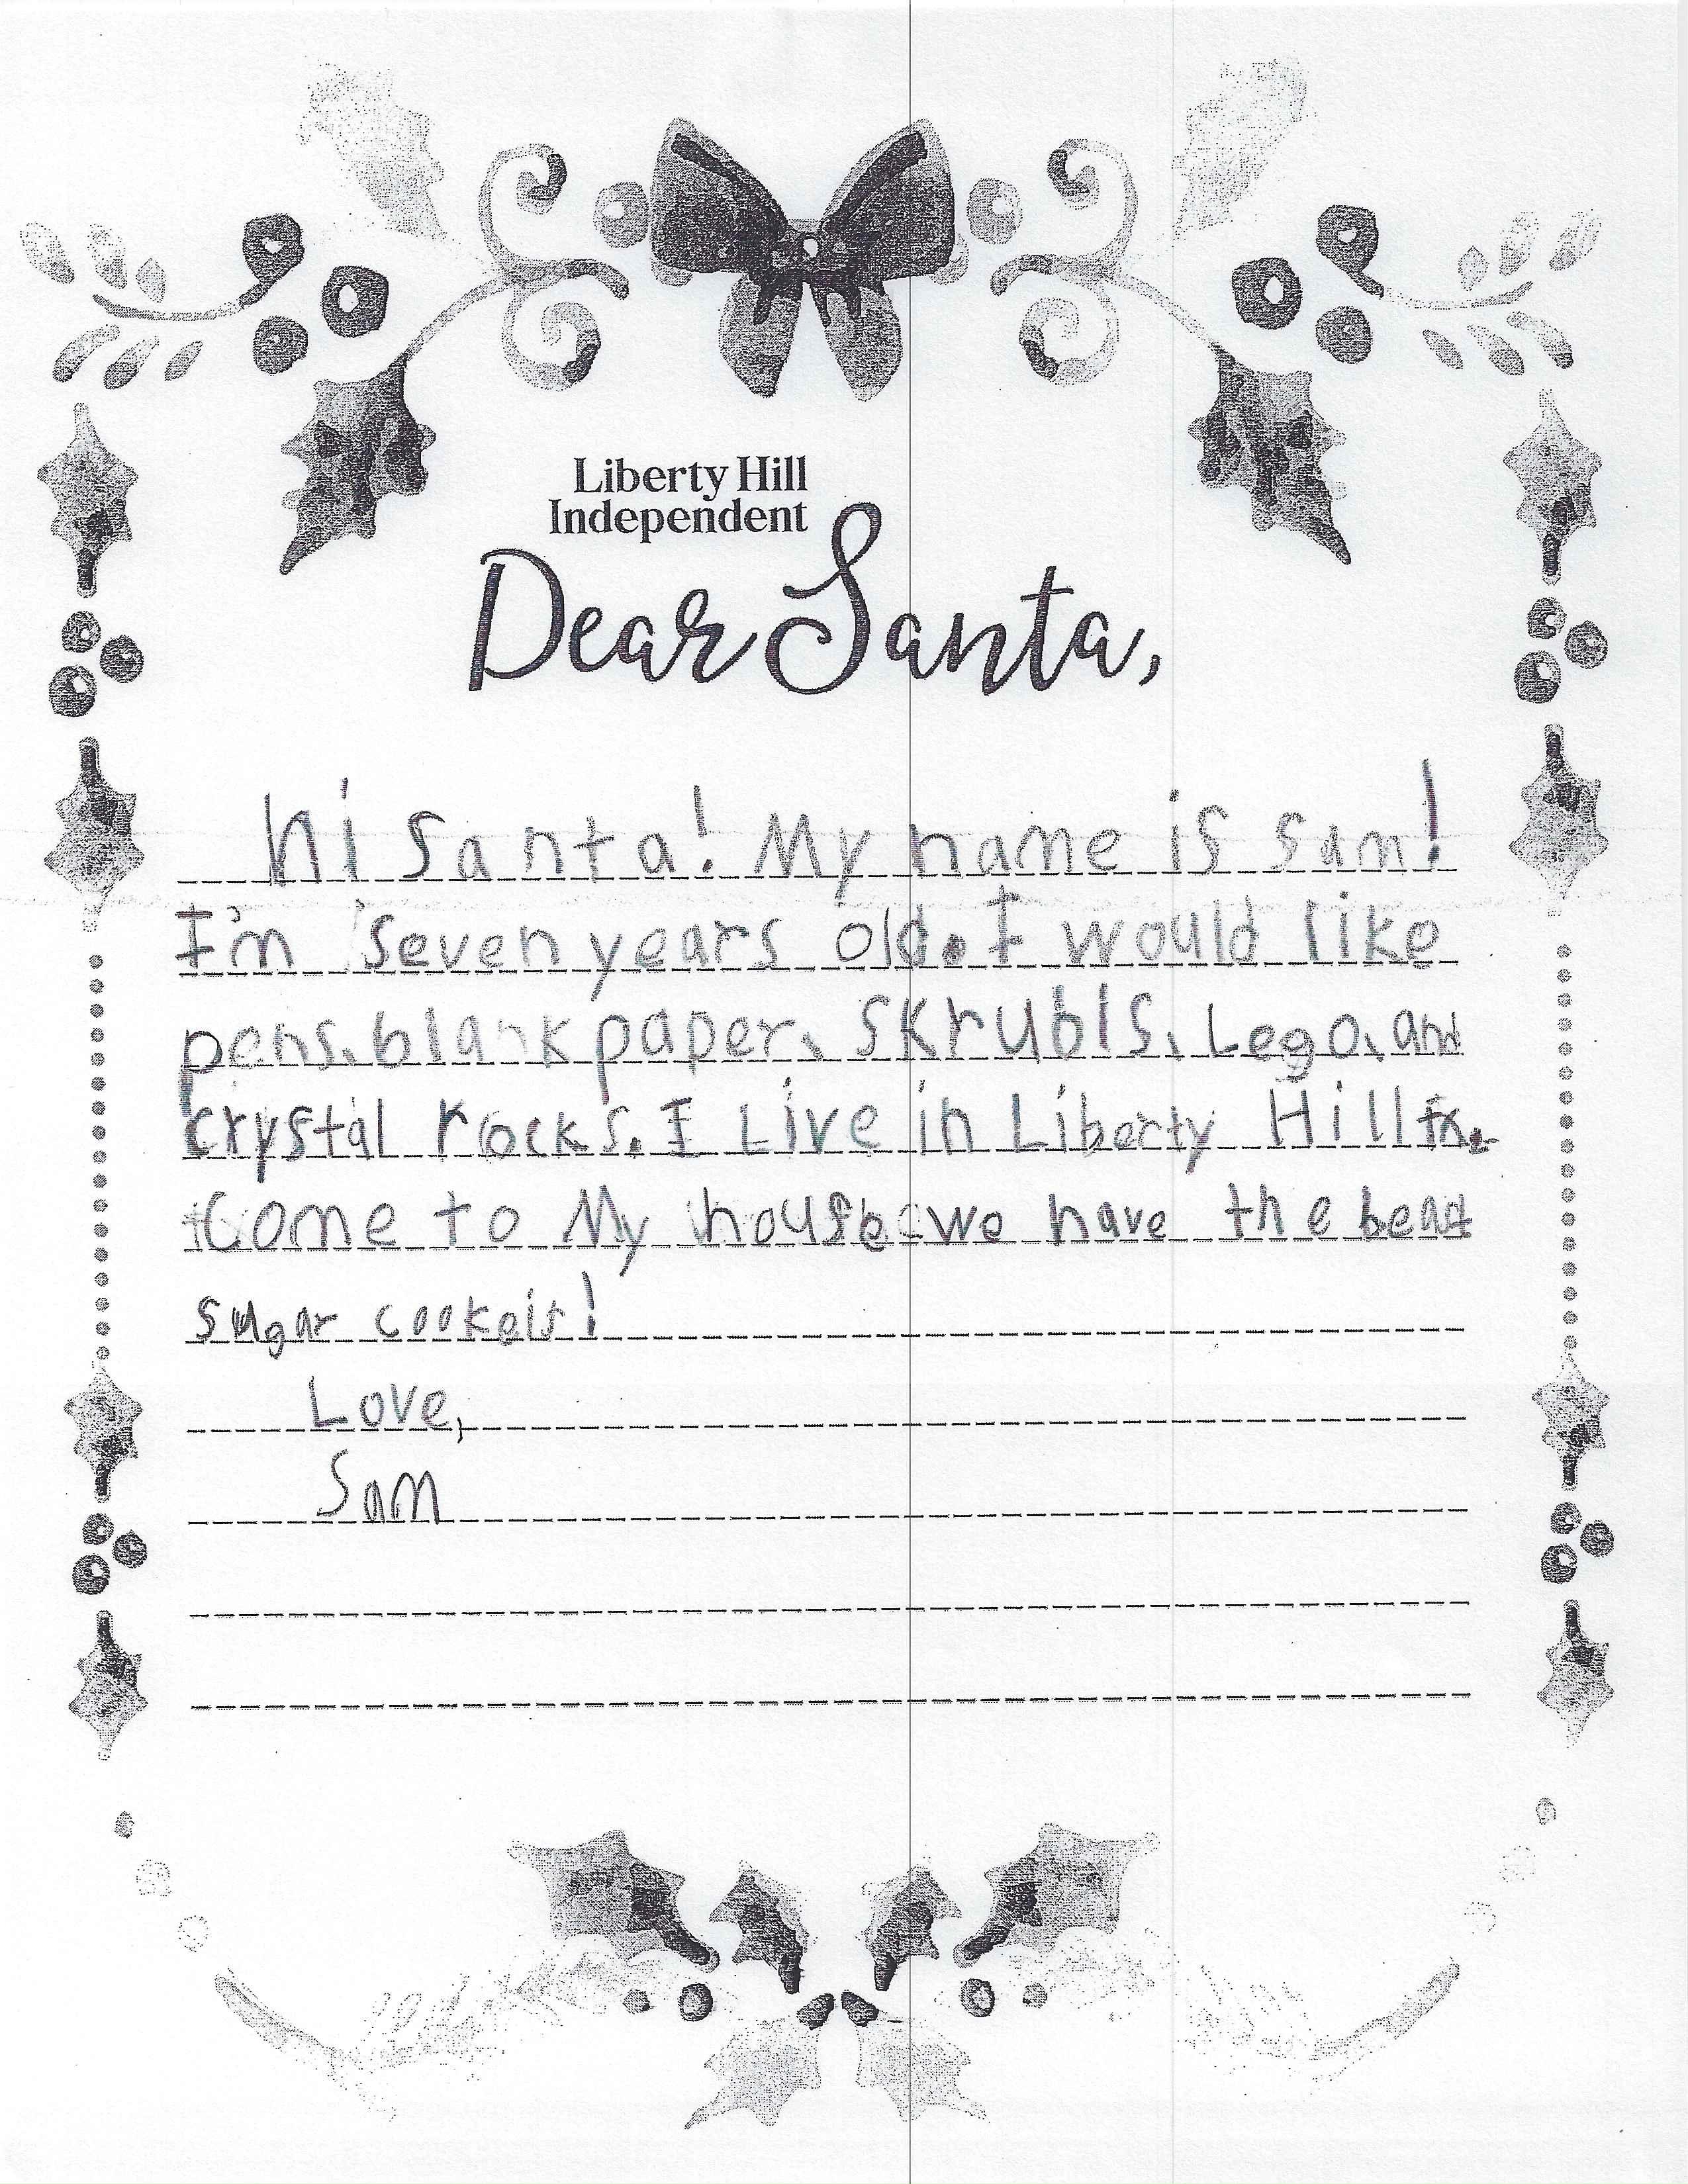 Liberty Hill
Independent
Dear Santa,
Hi Santa! My name is Sam!
I'm seven years old. I would like
pens, blank paper, skrubls, Lego, and
crystal rocks. I Live in Liberty Hill tx.
Come to My house we have the beast
sugar cookeis!
Love,
Sam